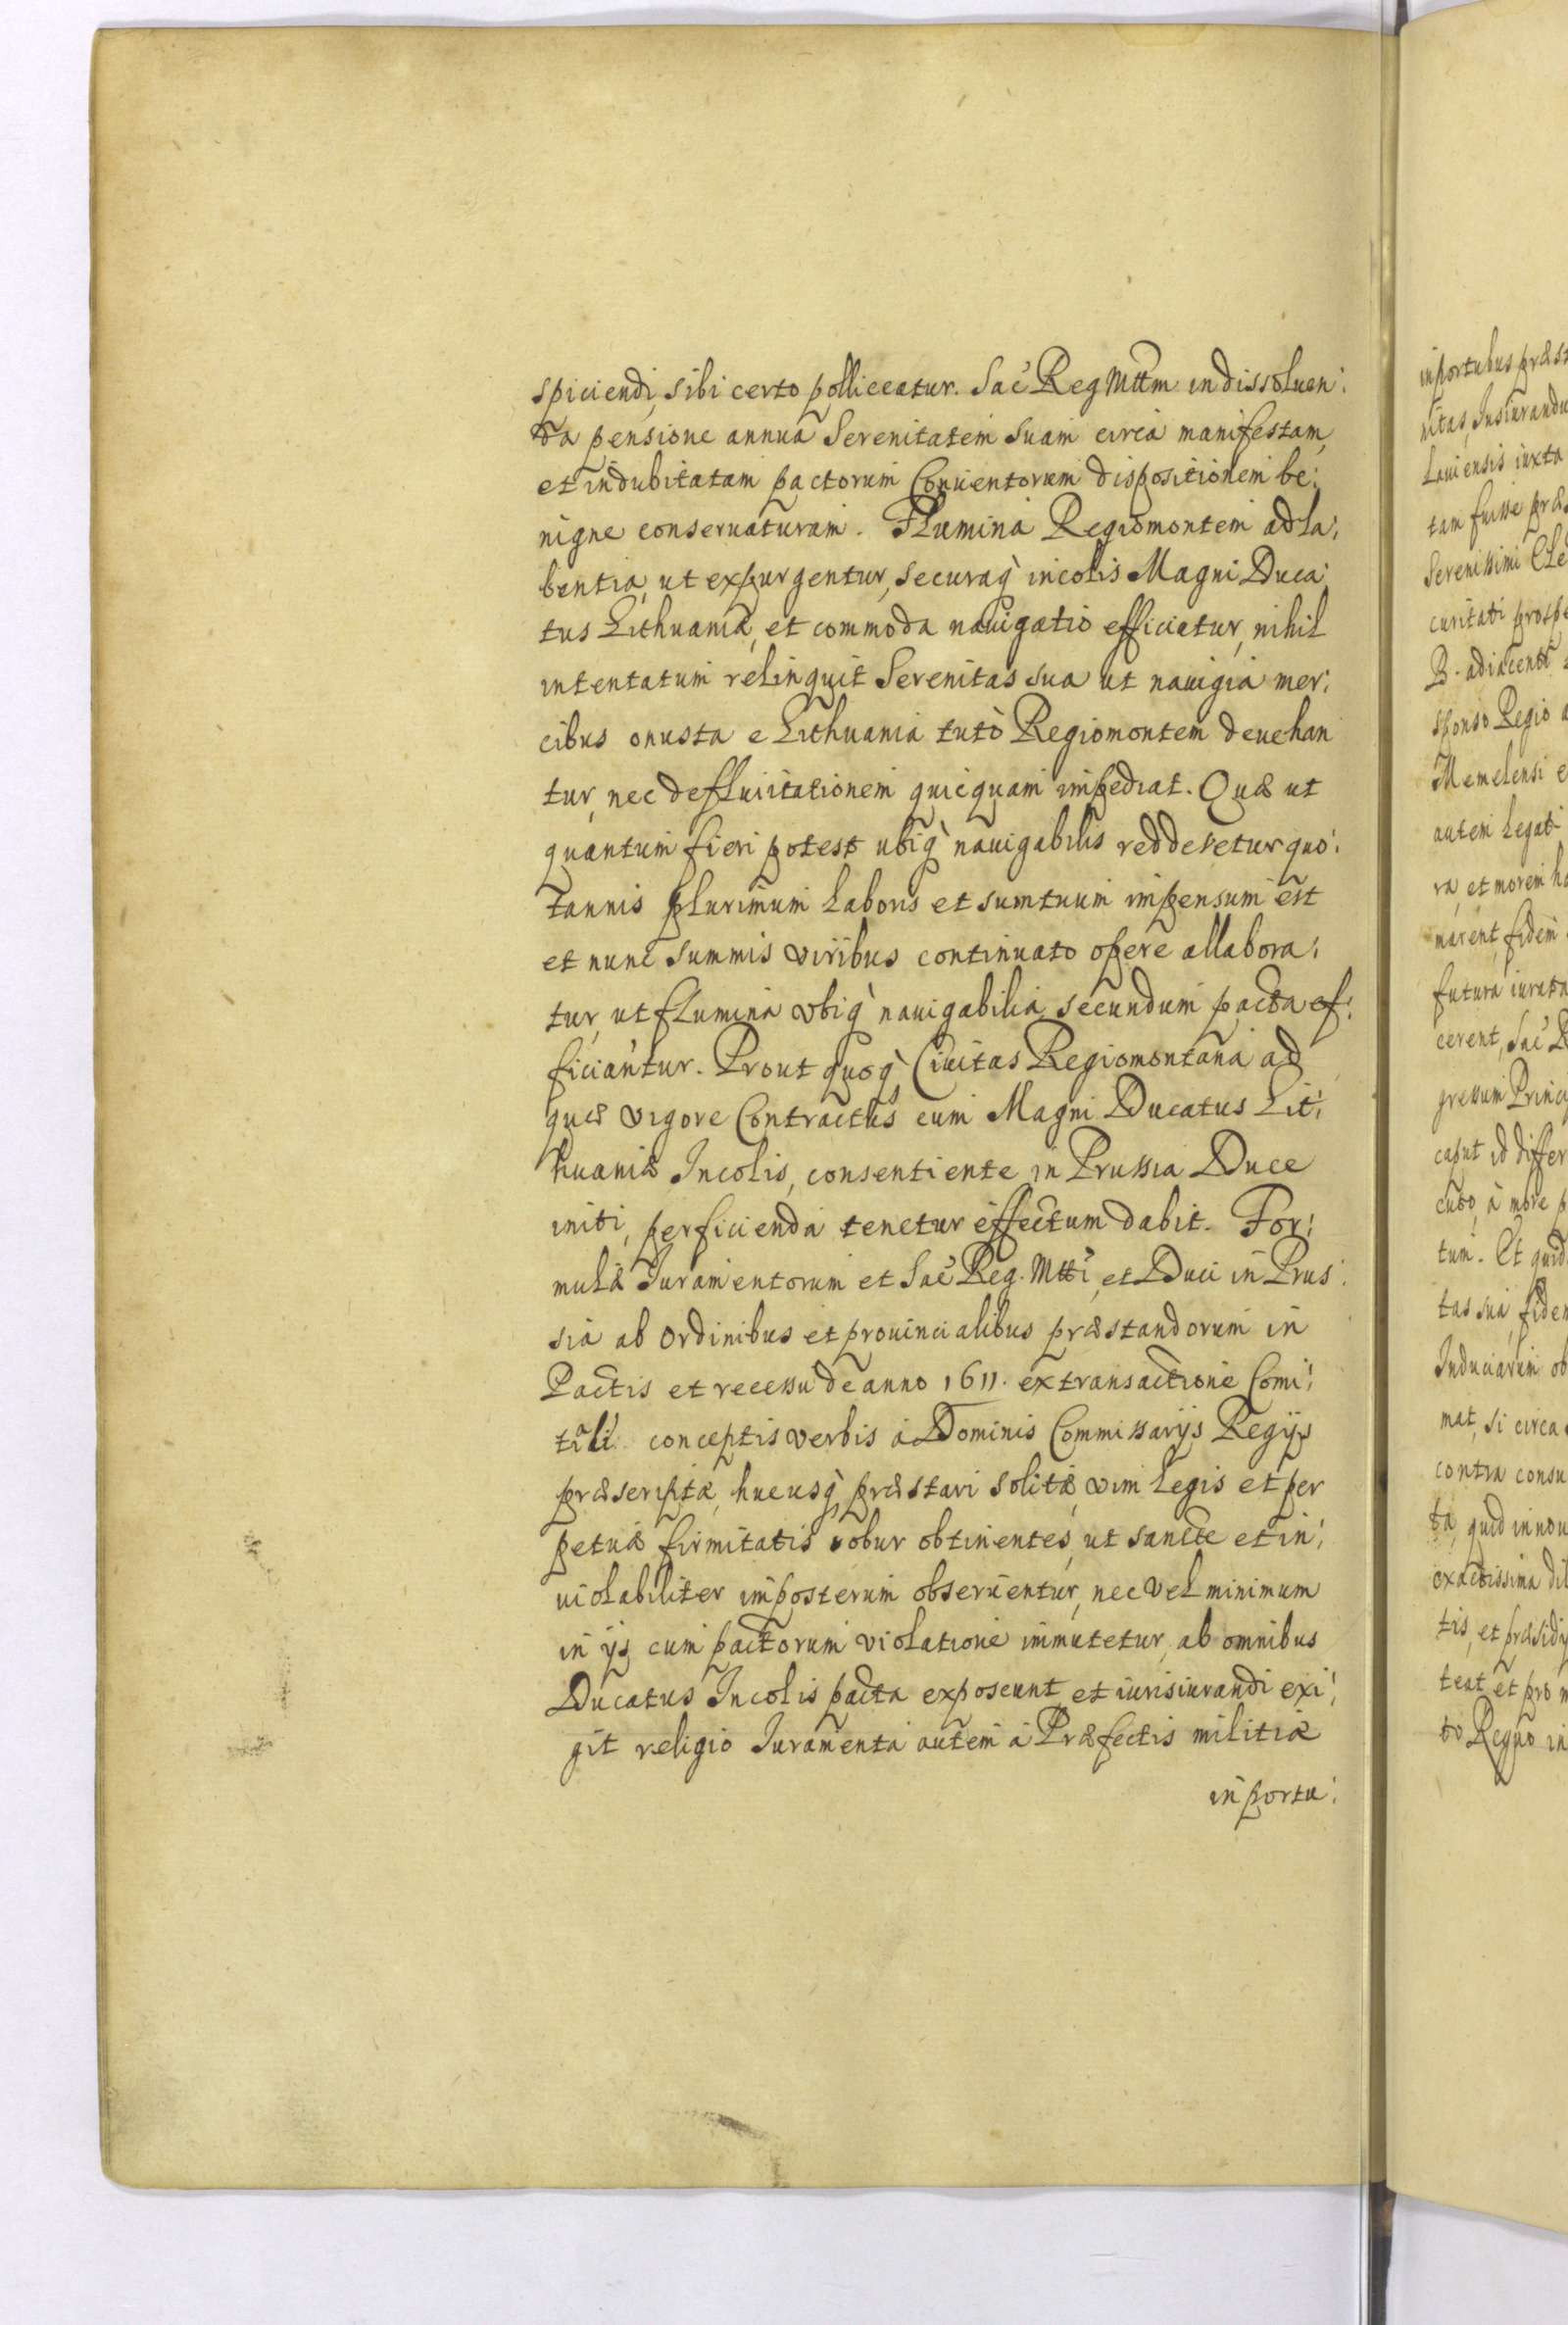 spiciendi, sibi certo polliceatur. Sac Reg Mttm in dissoluen:
da pensione annua Serenitatem suam circa manifestam,
et indubitatam pactorum Conuentorum dispositionem be:
nigne conseruaturam. Flumina Regiomontem adla:
bentia, ut expurgentur, securaq incolis Magni Duca:
tus Lithuaniæ, et commoda nauigatio efficiatur, nihil
intentatum relinquit Serenitas sua ut nauigia mer:
cibus onusta e Lithuania tutò Regiomontem deuehan
tur, nec defluuitationem quicquam impediat. Quæ ut
quantum fieri potest ubiq nauigabilis redderetur quo:
tannis plurimum laboris et sumtuum impensum est
et nunc summis viribus continuato opere allabora:
tur, ut flumina vbiq nauigabilia secundum pacta ef:
ficiantur. Prout quoq Ciuitas Regiomontana ad
quæ vigore Contractus cum Magni Ducatus Lit:
huaniæ Incolis, consentiente in Prussia Duce
initi, perficienda tenetur effectum dabit. For:
mulæ Iuramentorum et Sac Reg. Mtti, et Duci in Prus:
sia ab ordinibus et prouincialibus præstandorum in
Pactis et recessu de anno 1611. ex transactione Comi:
tiali conceptis verbis à Dominis Commissarijs Regijs
præscriptæ, hucusq præstari solitæ, vim legis et per
petuæ firmitatis robur obtinentes, ut sancte et in:
uiolabiliter imposterum obseruentur, nec vel minimum
in ijs cum pactorum violatione immutetur, ab omnibus
Ducatus Incolis pacta exposcunt et iurisiurandi exi:
git religio Iuramenta autem à Præfectis militiæ
in portu:
in portubus præst
nitas, Iusiurandu
Lauiensis iuxta
tam fuisse præs
Serenissimi Ele
curitati prospe
B. adiacenti
sponso Regio a
Memelensi e
autem Legati
ra, et morem ha
narent, fidem
futura iurata
cerent, Sac R
gressum Princi
caput id differ
cuto, à more p
tum. Et quid
tas sua fidem
Induciarum ob
mat, si circa
contra consu
ta, quid innou
exactissima dil
tis, et præsidy
teat et pro m
to Regno in